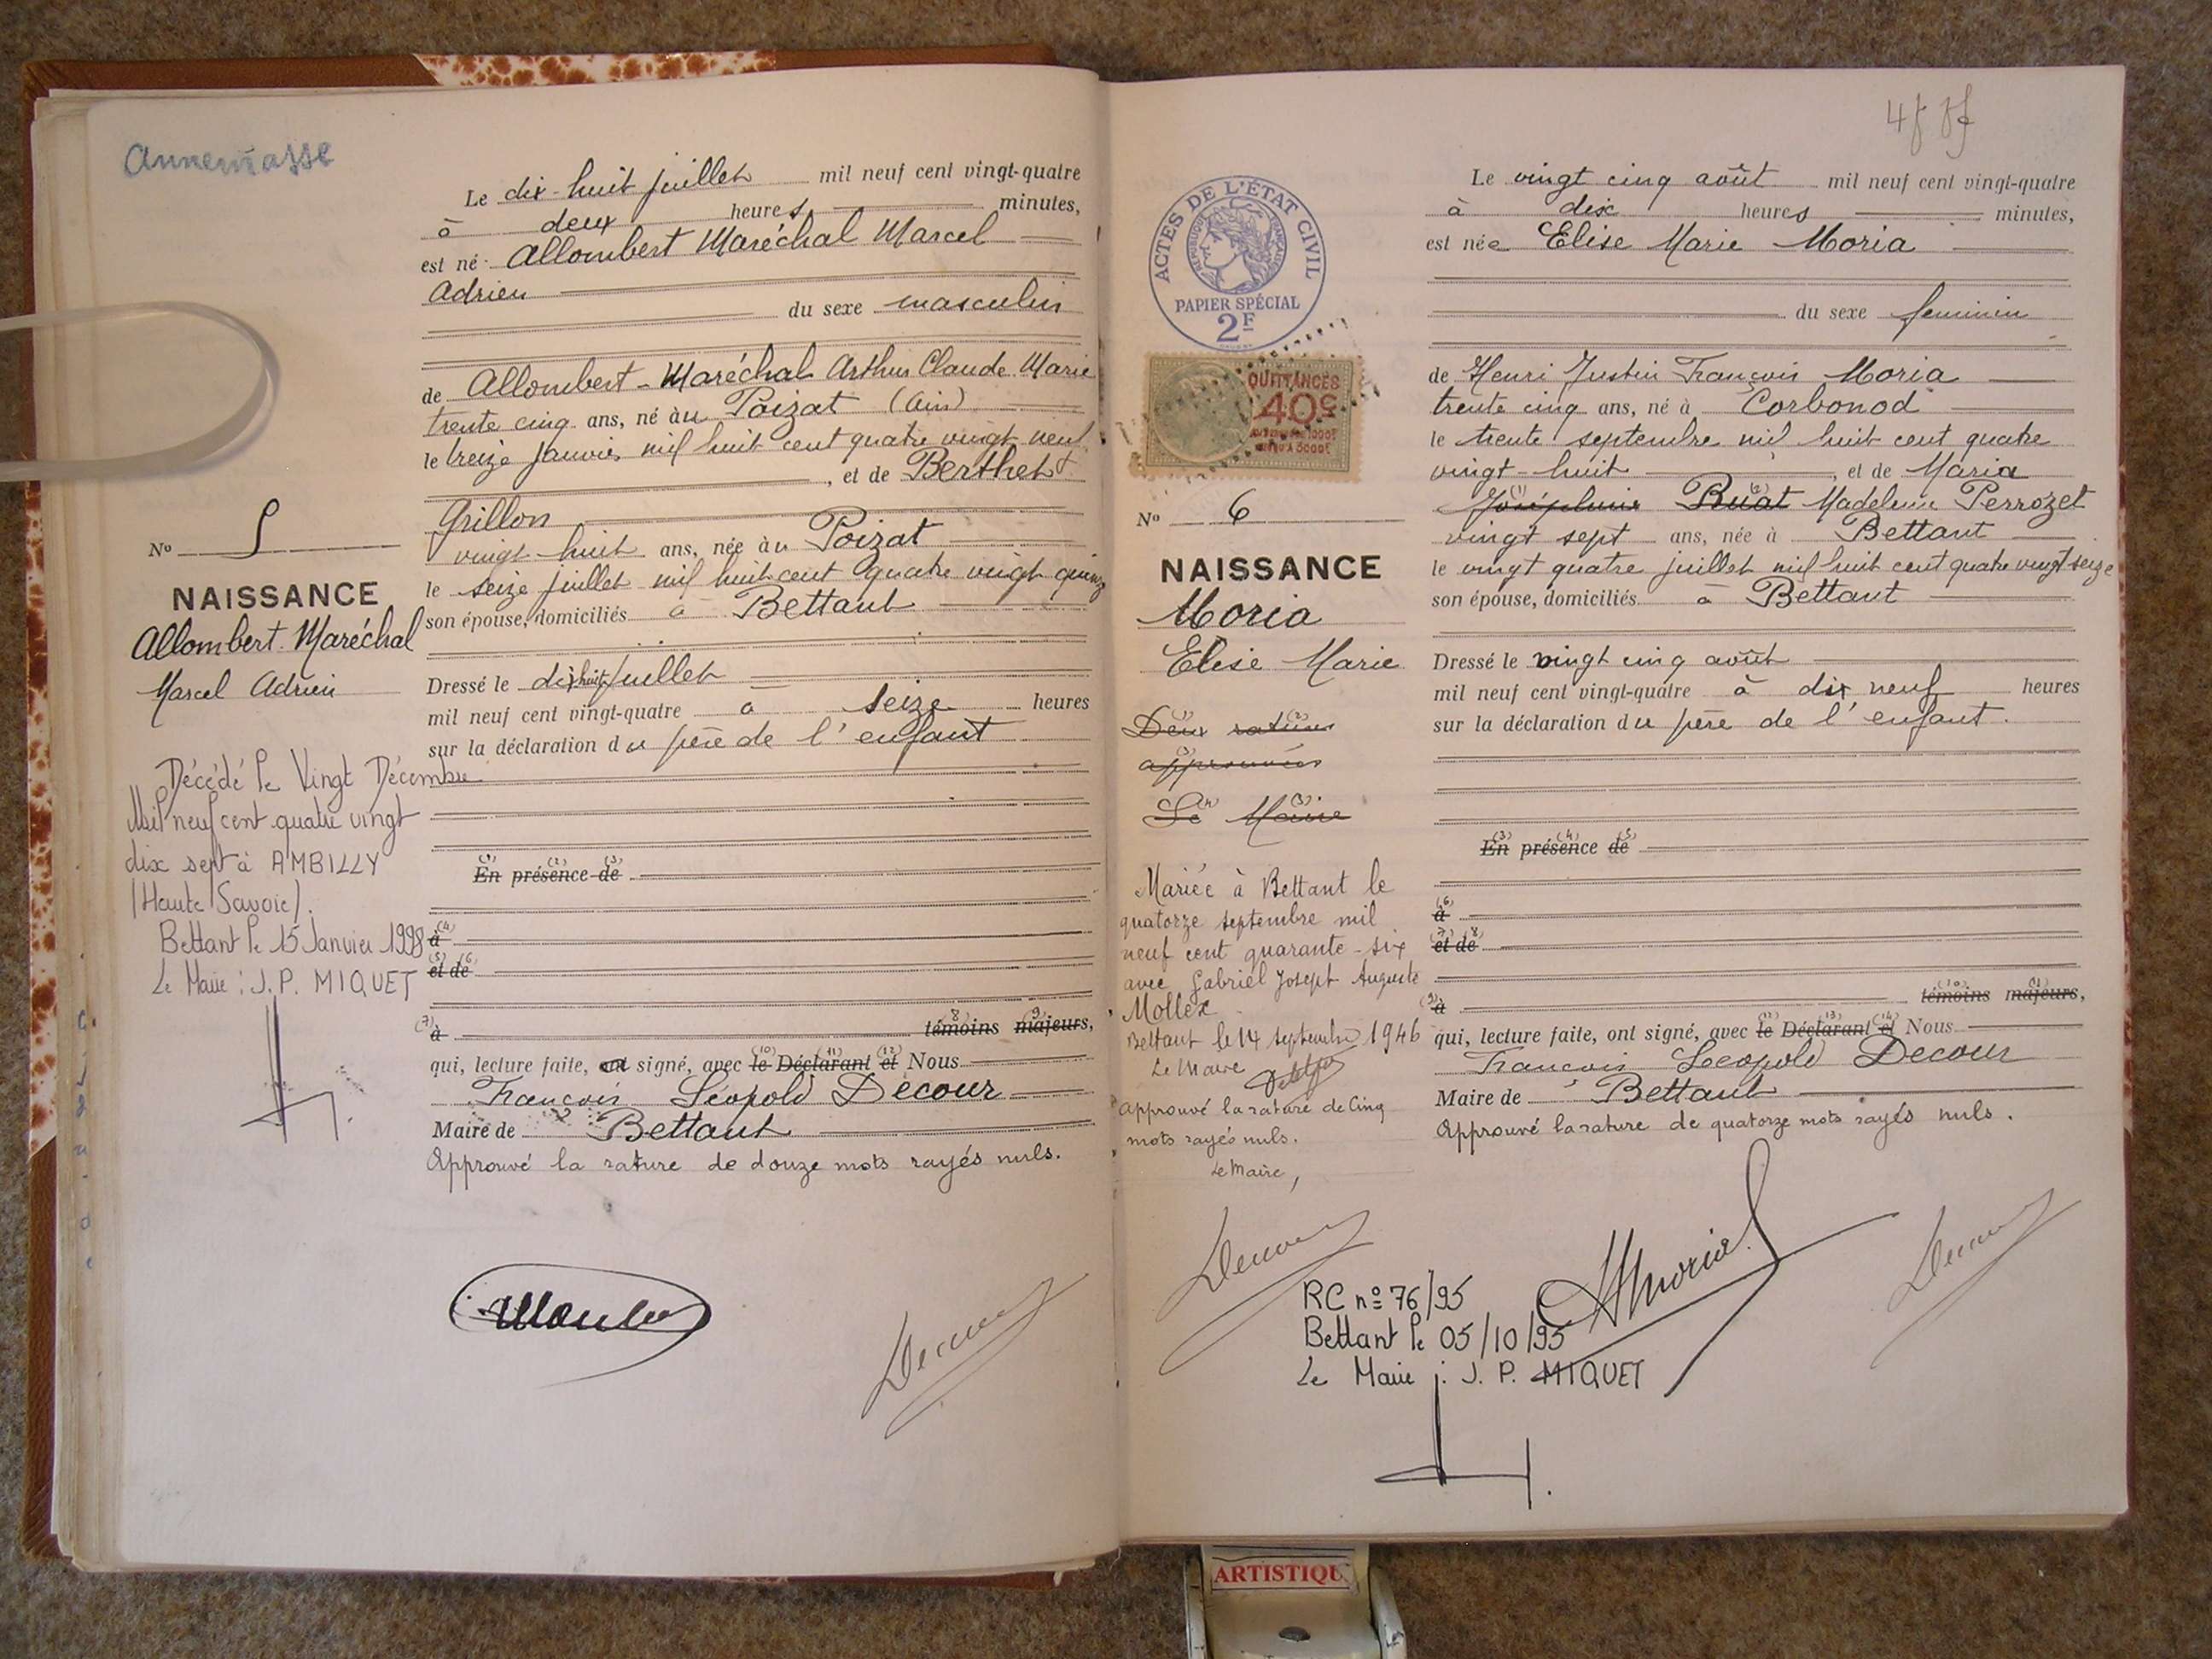 Annemasse
Le dix-huit juillet mil neuf cent vingt-quatre
à deux heures minutes,
est né Allombert Maréchal Marcel
Adrien
du sexe masculin
de Allombert-Maréchal Arthur Claude Marie
trente cinq ans, né au Poizat (Ain)
le treize janvier mil huit cent quatre vingt neuf
, et de Berthet
Grillon
vingt-huit ans, née au Poizat
le seize juillet mil huit cent quatre vingt quinze
son épouse, domiciliés à Bettant
Dressé le dix huit juillet
mil neuf cent vingt-quatre à seize heures
sur la déclaration du père de l'enfant
(1) (2) (3)
En présence de
(4)
à
(5) (6)
et de
(7) (8) (9)
à témoins majeurs,
(10) (11) (12)
qui, lecture faite, signé, avec le Déclarant et Nous
François Léopold Decour
Maire de Bettant
Approuvé la rature de douze mots rayés nuls.
Decour
No 5
NAISSANCE
Allombert-Maréchal
Marcel Adrien
Décédé le Vingt Décembre
Mil neuf cent quatre vingt
dix sept à AMBILLY
(Haute Savoie).
Bettant le 15 Janvier 1998
Le Maire : J. P. MIQUET
ACTES DE L'ÉTAT CIVIL
RÉPUBLIQUE FRANÇAISE
PAPIER SPÉCIAL
2F
QUITTANCES
40c
No 6
NAISSANCE
Moria
Elise Marie
(1) (2)
Deux ratures
(3)
approuvées
(4) (5)
Le Maire
Mariée à Bettant le
quatorze septembre mil
neuf cent quarante-six
avec Gabriel Joseph Auguste
Mollex
Bettant le 14 septembre 1946
Le Maire
Approuvé la rature de Cinq
mots rayés nuls.
Le Maire,
Decour
Le vingt cinq août mil neuf cent vingt-quatre
à dix heures minutes,
est née Elise Marie Moria
du sexe féminin
de Henri Justin François Moria
trente cinq ans, né à Corbonod
le trente septembre mil huit cent quatre
vingt-huit , et de Maria
(1) (2)
Joséphine Ruat Madeleine Perrozet
vingt sept ans, née à Bettant
le vingt quatre juillet mil huit cent quatre vingt seize
son épouse, domiciliés à Bettant
Dressé le vingt cinq août
mil neuf cent vingt-quatre à dix neuf heures
sur la déclaration du père de l'enfant.
(3) (4) (5)
En présence de
(6)
à
(7) (8)
et de
(9) (10) (11)
à témoins majeurs,
(12) (13) (14)
qui, lecture faite, ont signé, avec le Déclarant et Nous
François Léopold Decour
Maire de Bettant
Approuvé la rature de quatorze mots rayés nuls.
HMoria
Decour
RC nº 76/95
Bettant le 05/10/95
Le Maire : J. P. MIQUET
ARTISTIQU